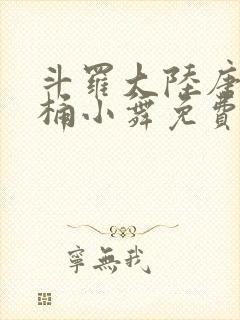 斗羅大陸唐
桶小舞免費
寧無我